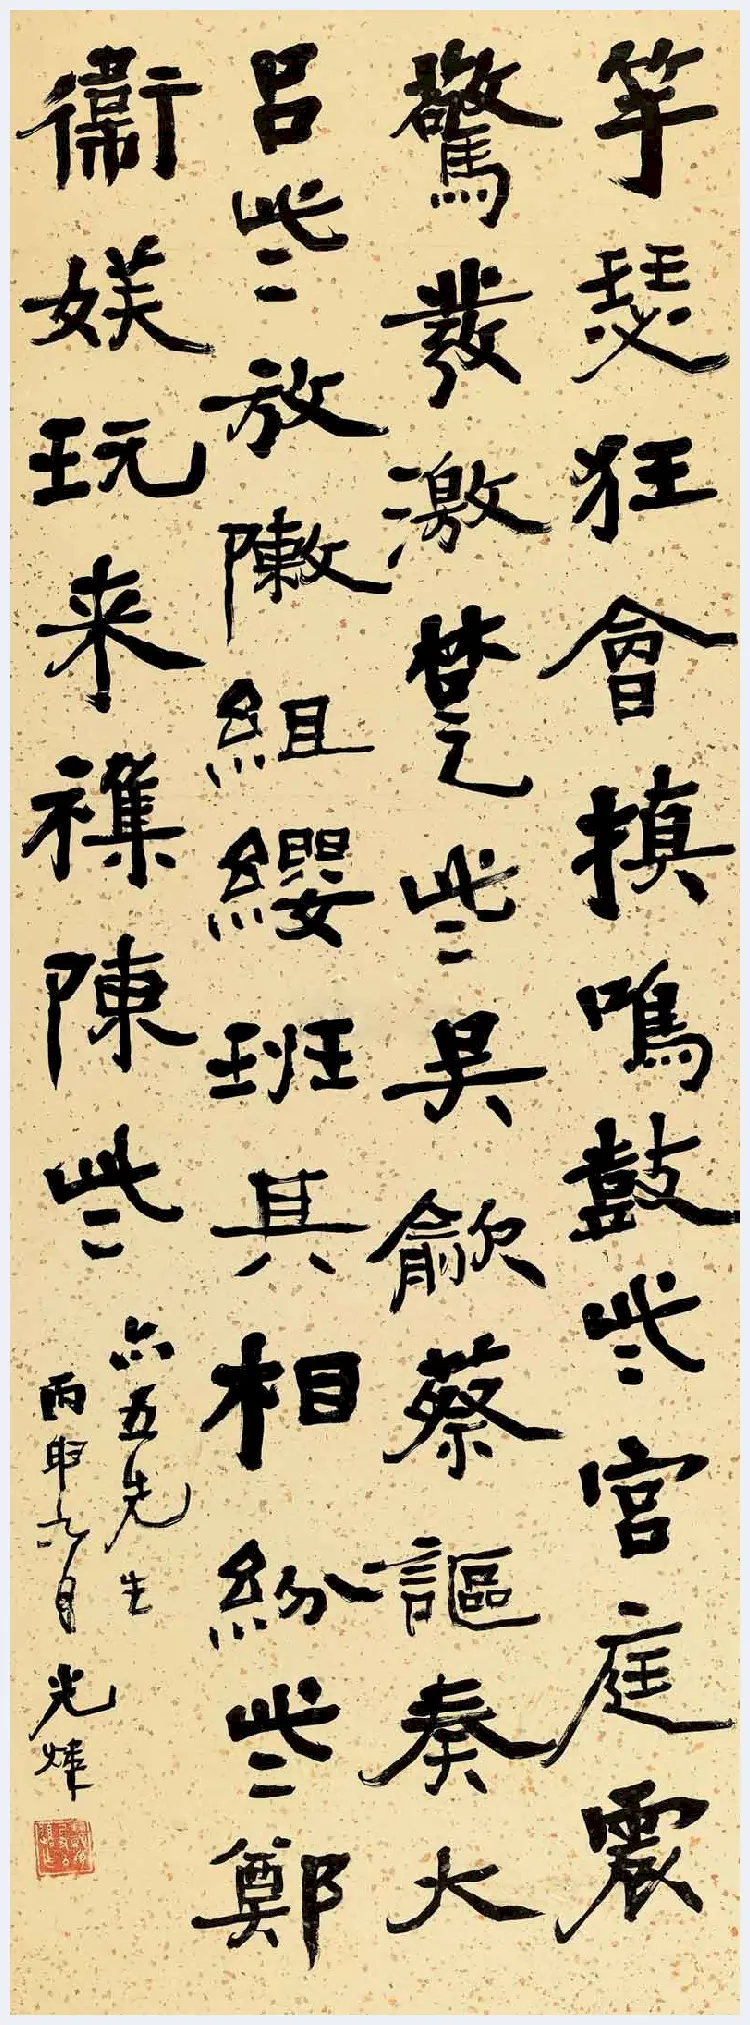 竽瑟狂會搷鳴鼓些宮庭震
驚發激楚些吳歈蔡謳奏大
呂些放敶組纓班其相紛些鄭
衛玩来襍陳些
六五先生
丙申九月光煒